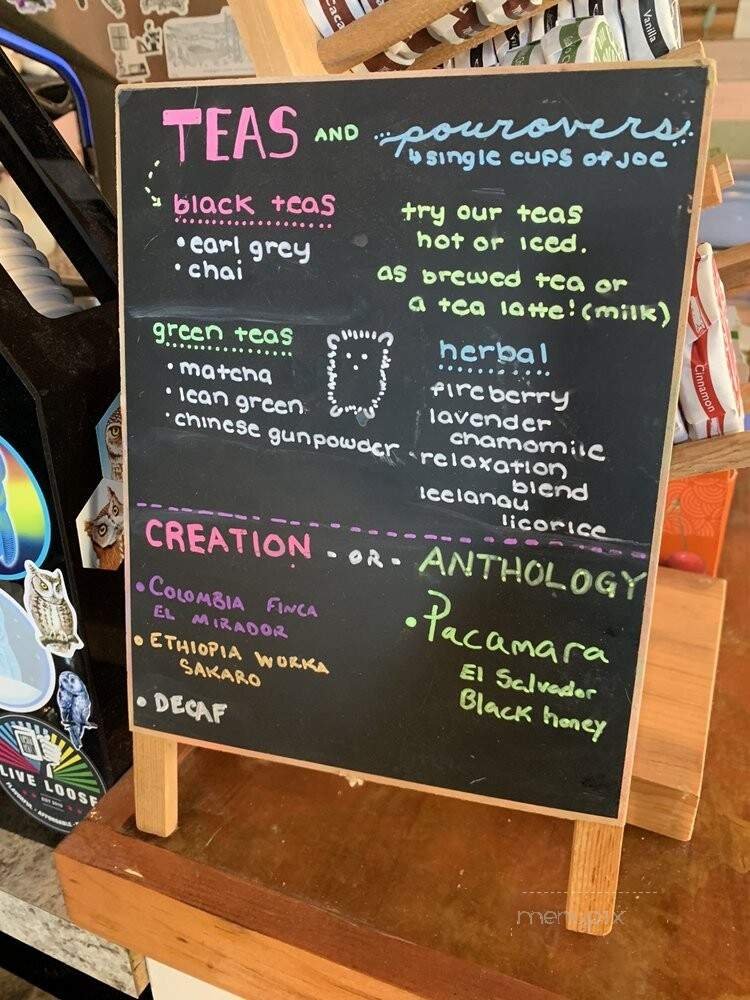 TEAS AND pourovers
4 single cups of joe
black teas
• earl grey
• chai
try our teas
hot or iced.
as brewed tea or
a tea latte! (milk)
green teas
• matcha
• lean green
• chinese gunpowder
herbal
fireberry
lavender
chamomile
• relaxation
blend
leelanau
licorice
CREATION - OR - ANTHOLOGY
• COLOMBIA FINCA
EL MIRADOR
• ETHIOPIA WORKA
SAKARO
• DECAF
• Pacamara
El Salvador
Black honey
Vanilla
Cinnamon
LIVE LOOSE
menupix